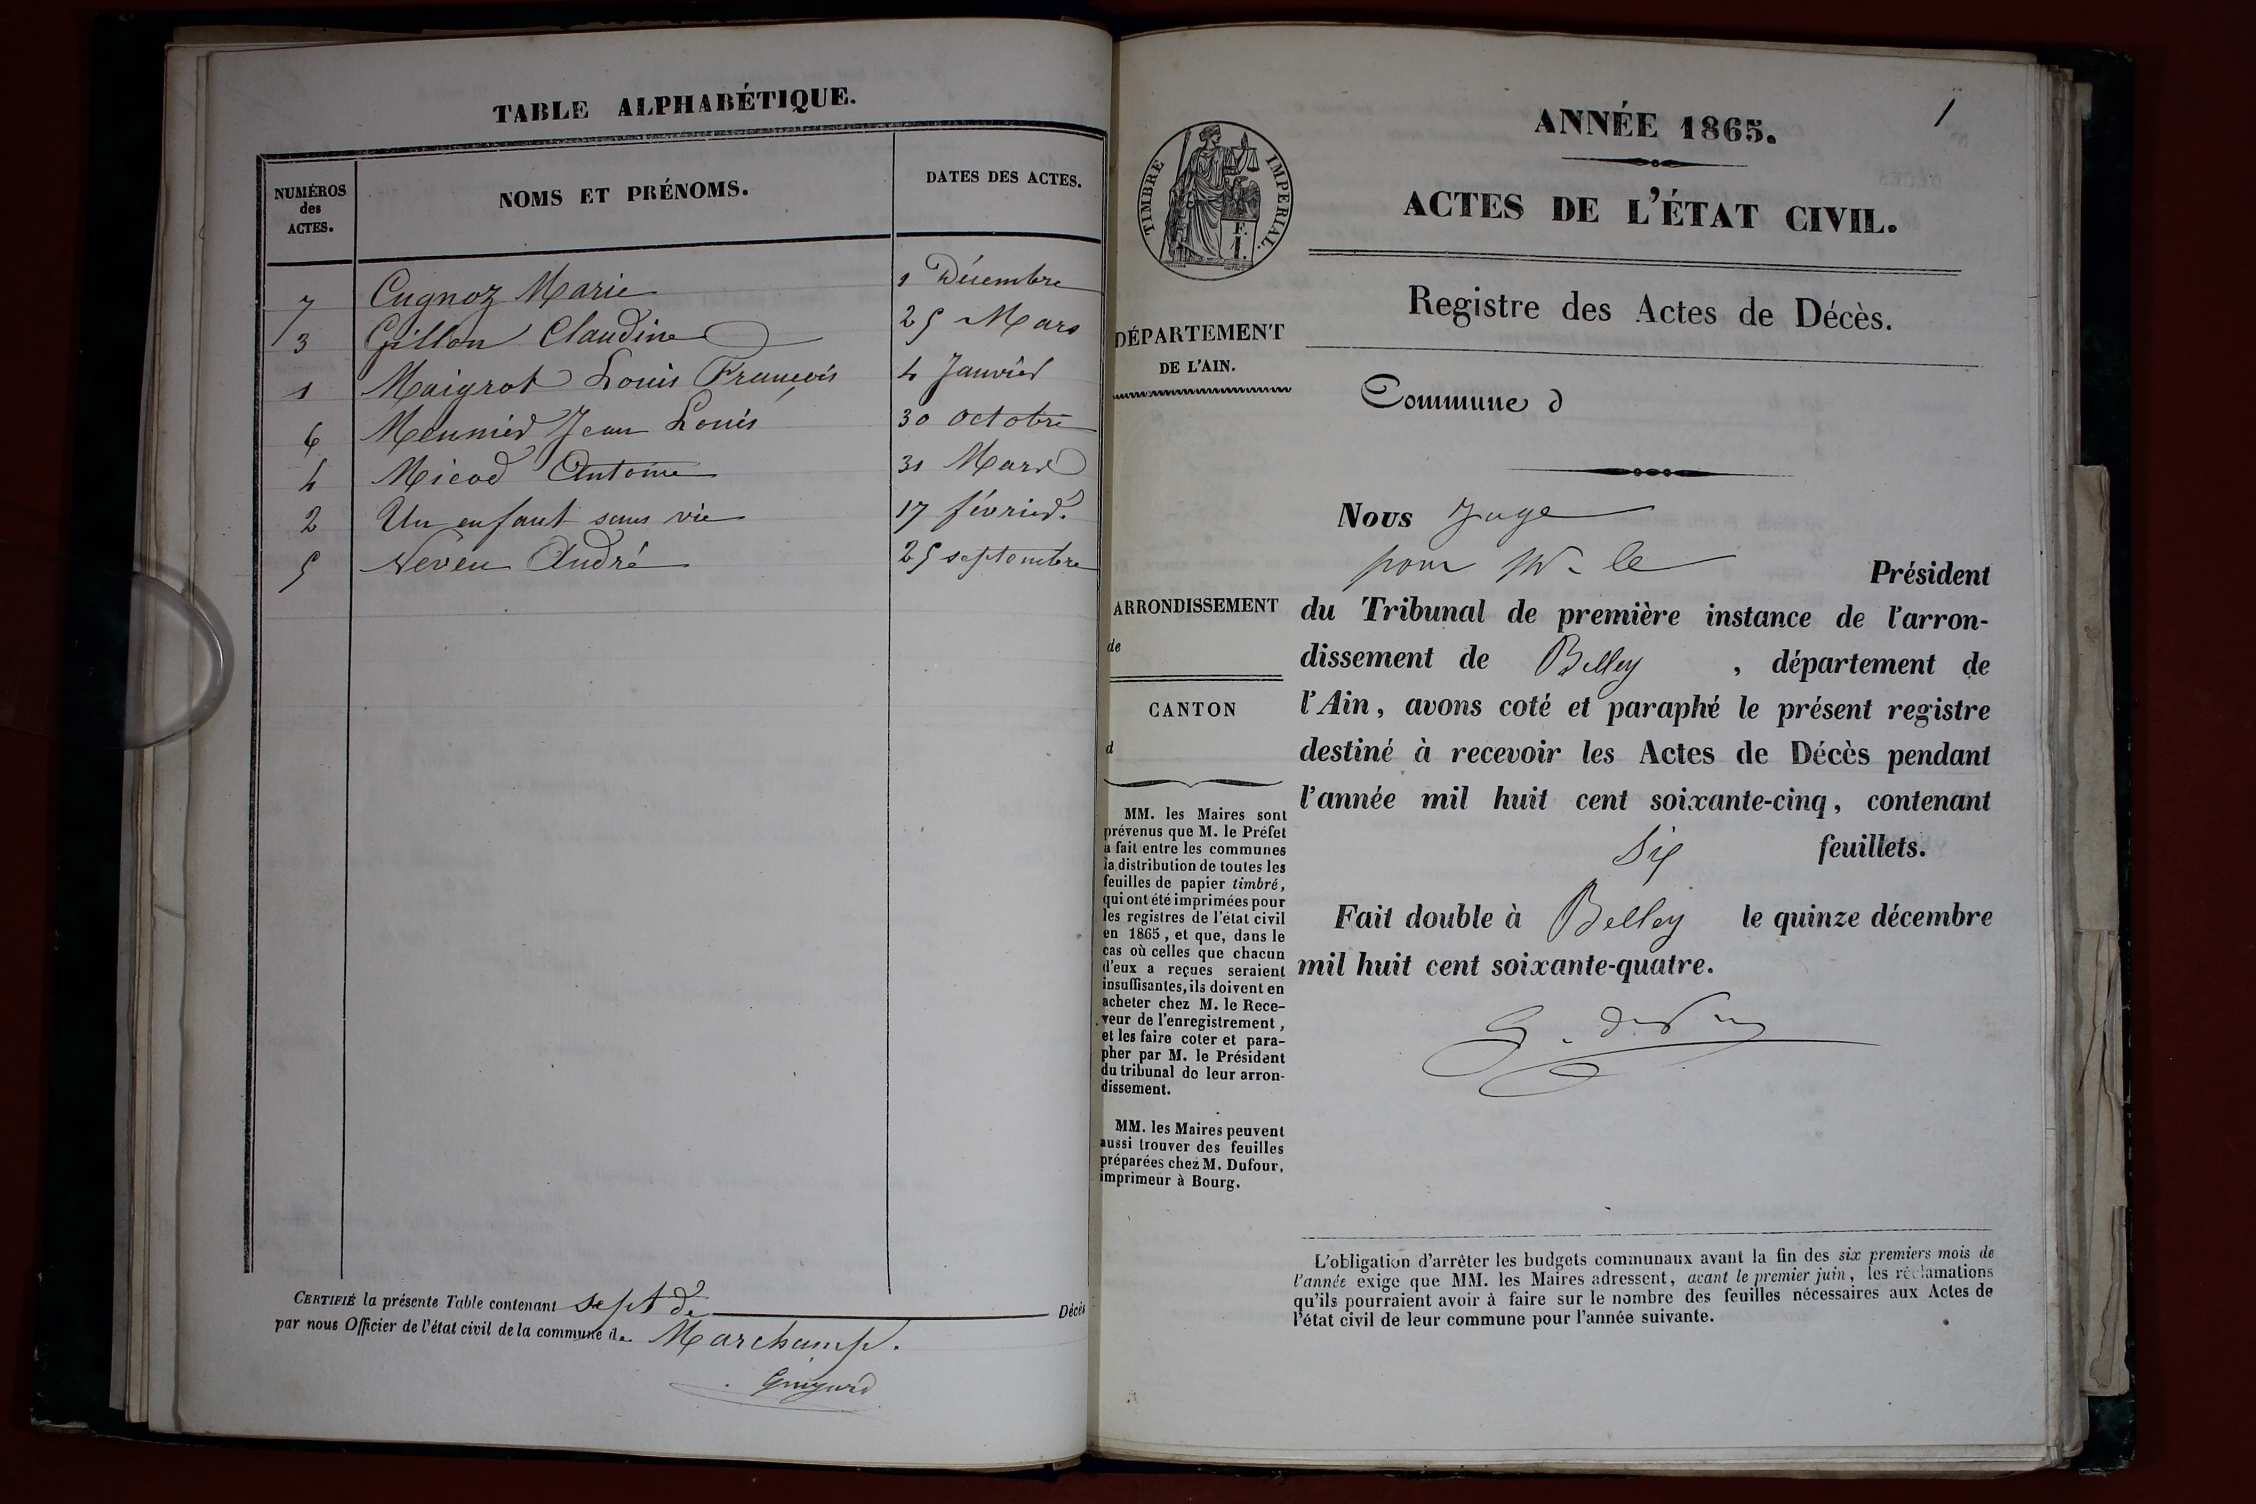 TABLE ALPHABÉTIQUE.
NUMÉROS
des
ACTES.
NOMS ET PRÉNOMS.
DATES DES ACTES.
7 Cugnoz Marie 1 Décembre
3 Gillon Claudine 25 Mars
1 Maigrot Louis François 4 Janvier
6 Meunier Jean Louis 30 octobre
4 Micod Antoine 31 Mars
2 Un enfant sans vie 17 février.
5 Neveu André 25 septembre
CERTIFIÉ la présente Table contenant sept dé Décès
par nous Officier de l'état civil de la commune de Marchamp.
Guigard
1
ANNÉE 1865.
ACTES DE L'ÉTAT CIVIL.
TIMBRE IMPÉRIAL.
F.
1.
Registre des Actes de Décès.
DÉPARTEMENT
DE L'AIN.
Commune d
Nous Juge
pour Mr le Président
du Tribunal de première instance de l'arron-
dissement de Belley, département de
l'Ain, avons coté et paraphé le présent registre
destiné à recevoir les Actes de Décès pendant
l'année mil huit cent soixante-cinq, contenant
Six feuillets.
Fait double à Belley le quinze décembre
mil huit cent soixante-quatre.
ARRONDISSEMENT
de
CANTON
d
MM. les Maires sont
prévenus que M. le Préfet
a fait entre les communes
la distribution de toutes les
feuilles de papier timbré,
qui ont été imprimées pour
les registres de l'état civil
en 1865, et que, dans le
cas où celles que chacun
d'eux a reçues seraient
insuffisantes, ils doivent en
acheter chez M. le Rece-
veur de l'enregistrement,
et les faire coter et para-
pher par M. le Président
du tribunal de leur arron-
dissement.
MM. les Maires peuvent
aussi trouver des feuilles
préparées chez M. Dufour,
imprimeur à Bourg.
L'obligation d'arrêter les budgets communaux avant la fin des six premiers mois de
l'année exige que MM. les Maires adressent, avant le premier juin, les réclamations
qu'ils pourraient avoir à faire sur le nombre des feuilles nécessaires aux Actes de
l'état civil de leur commune pour l'année suivante.